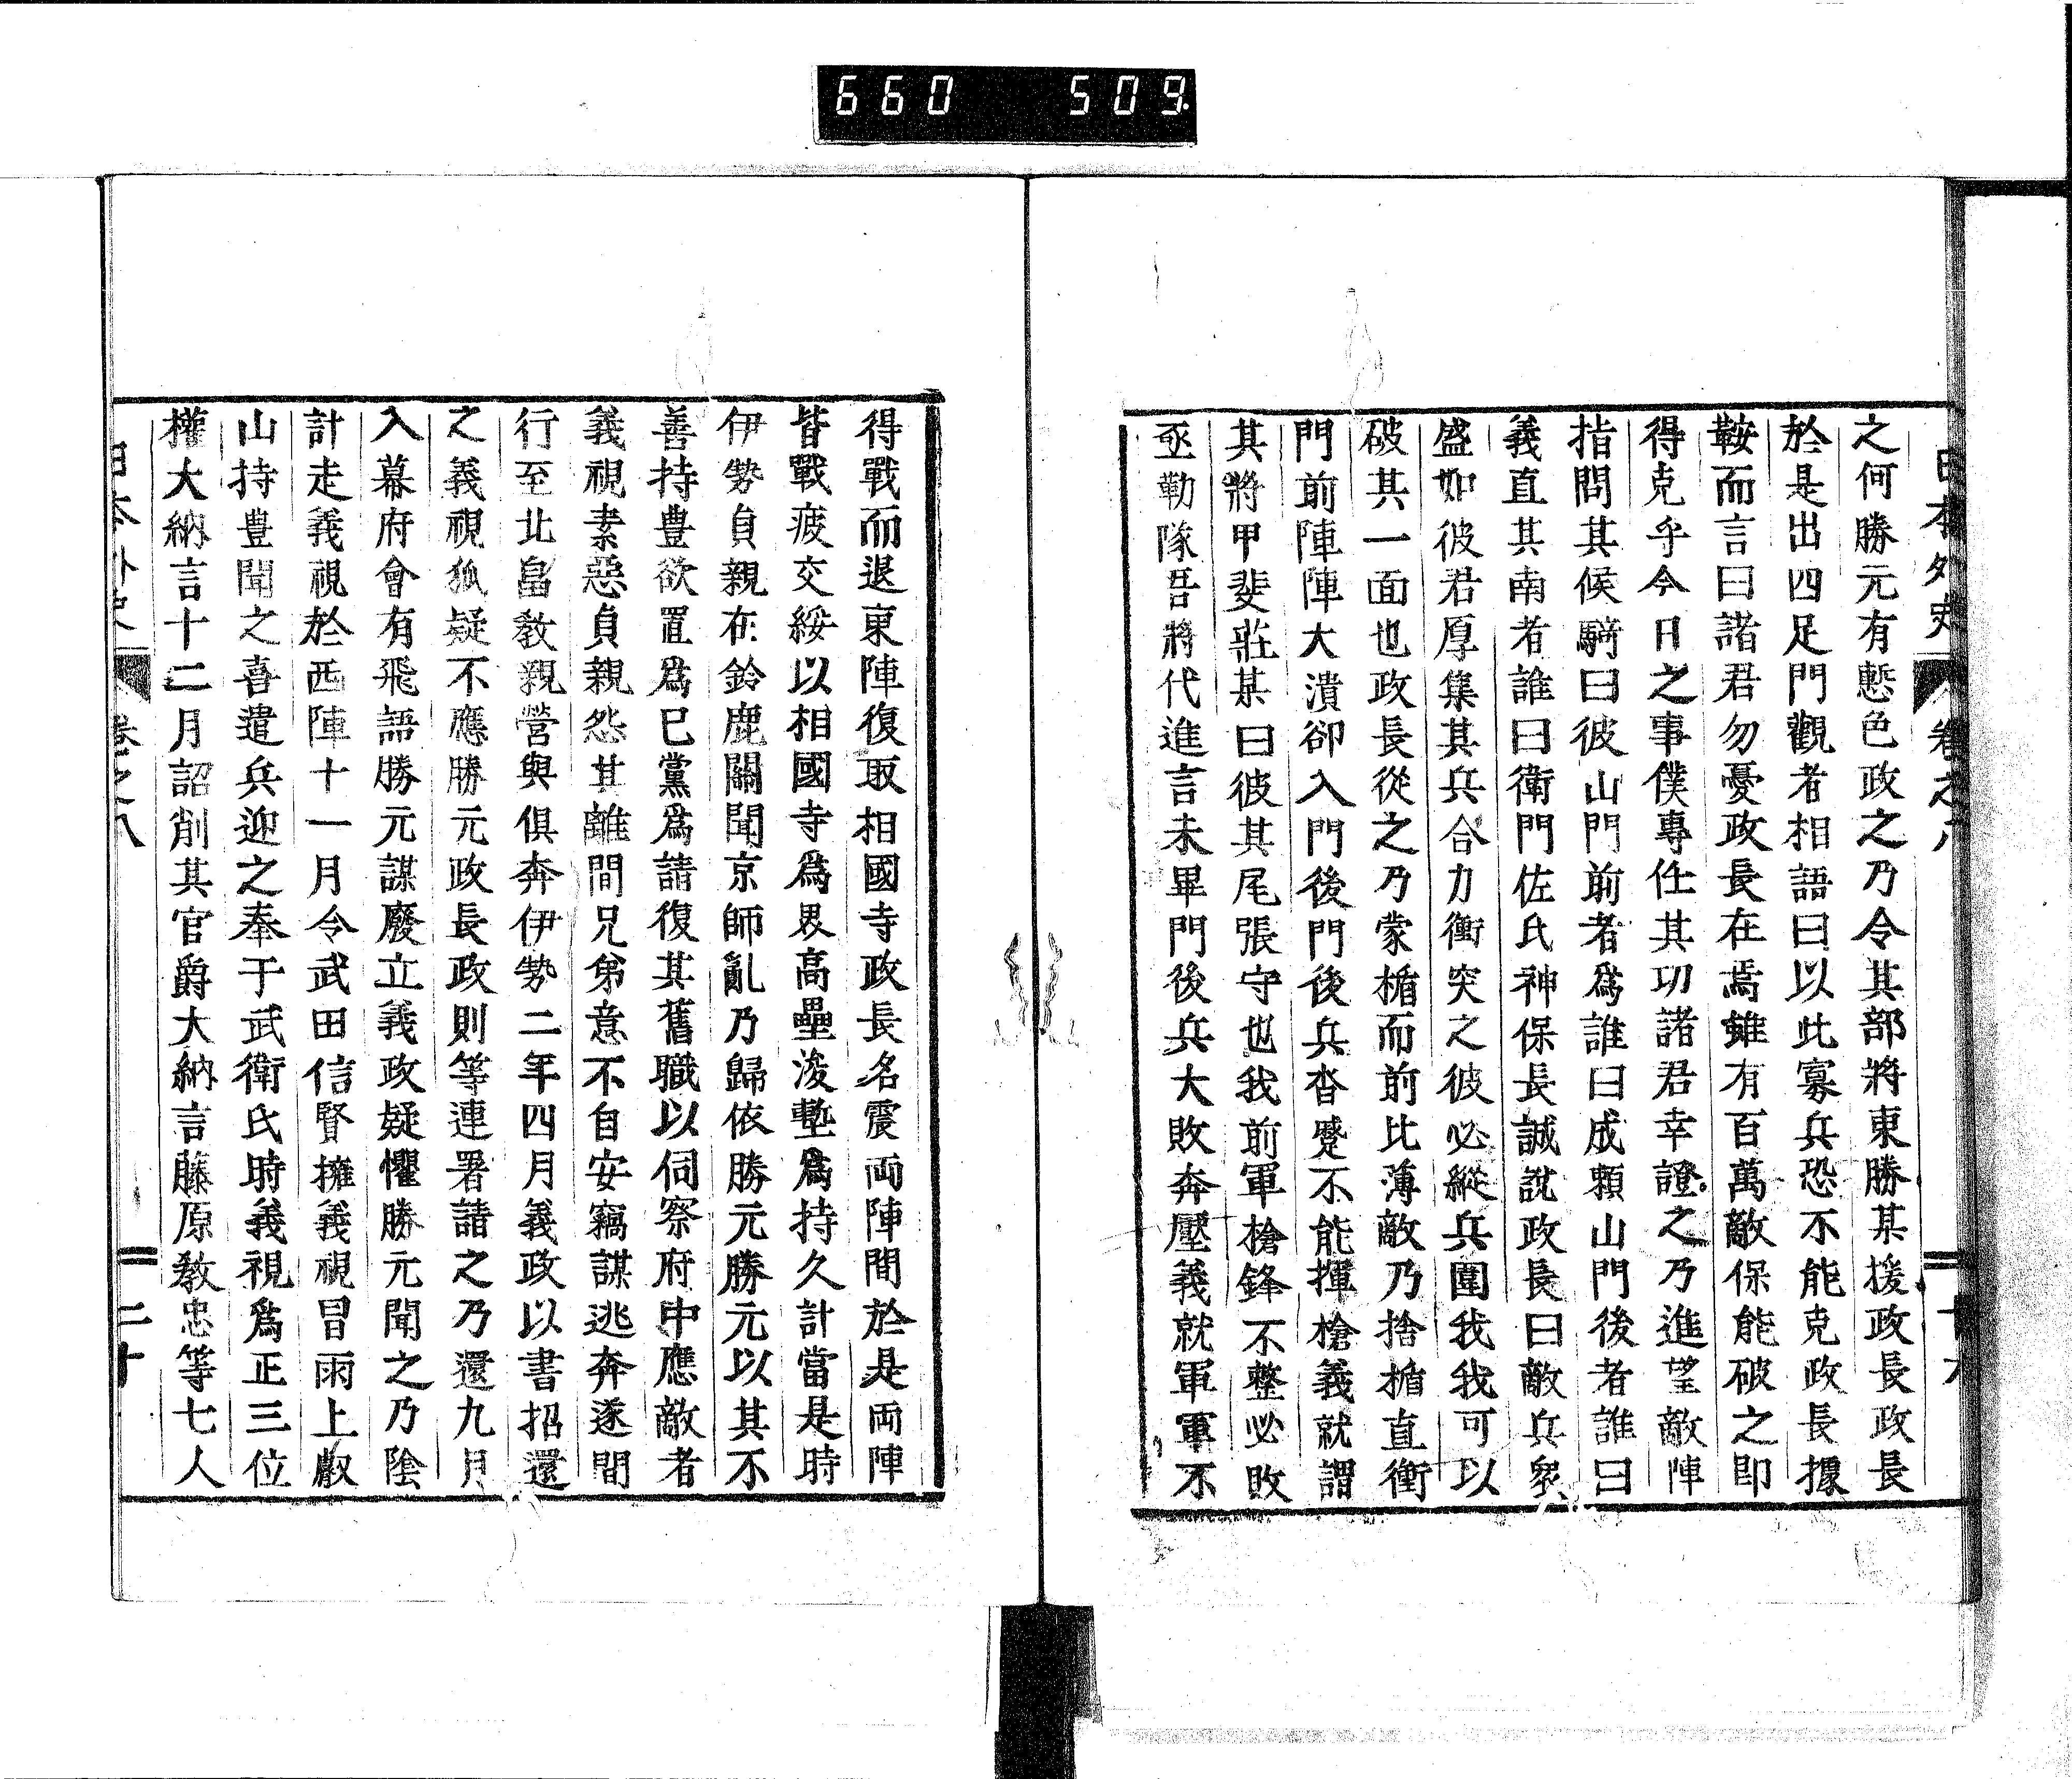 660 509
日本外史 卷之八
之何勝元有慙色政之乃令其部將東勝某援政長政長
於是出四足門觀者相語曰以此寡兵恐不能克政長據
鞍而言曰諸君勿憂政長在焉雖有百萬敵保能破之卽
得克乎今日之事僕專任其功諸君幸證之乃進望敵陣
指問其候騎曰彼山門前者爲誰曰成賴山門後者誰曰
義直其南者誰曰衛門佐氏神保長誠說政長曰敵兵衆
盛如彼君厚集其兵合力衝突之彼必縱兵圍我我可以
破其一面也政長從之乃蒙楯而前比薄敵乃捨楯直衝
門前陣陣大潰卻入門後門後兵沓蹙不能揮槍義就謂
其將甲斐莊某曰彼其尾張守也我前軍槍鋒不整必敗
亟勒隊吾將代進言未畢門後兵大敗奔壓義就軍軍不
得戰而退東陣復取相國寺政長名震両陣間於是両陣
皆戰疲交綏以相國寺爲界高壘浚塹爲持久計當是時
伊勢貞親在鈴鹿關聞京師亂乃歸依勝元勝元以其不
善持豊欲置爲已黨爲請復其舊職以伺察府中應敵者
義視素惡貞親怨其離間兄弟意不自安竊謀逃奔遂間
行至北畠教親營與俱奔伊勢二年四月義政以書招還
之義視狐疑不應勝元政長政則等連署諸之乃還九月
入幕府會有飛語勝元謀廢立義政疑懼勝元聞之乃陰
計走義視於西陣十一月令武田信賢擁義視冒雨上叡
山持豊聞之喜遣兵迎之奉于武衛氏時義視爲正三位
權大納言十二月詔削其官爵大納言藤原教忠等七人
日本外史 卷之八 二十